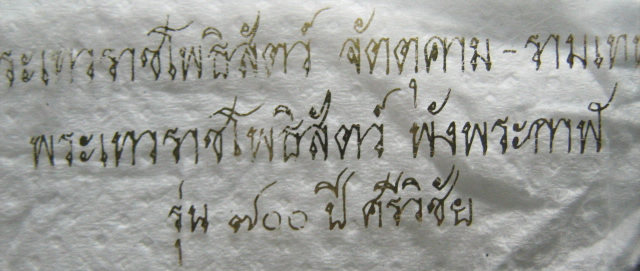 ระเทวราชโพธิสัตว์ จัตตุคาม-รามเทพ
พระเทวราชโพธิสัตว์ พังพระกาฬ
รุ่น ๗๐๐ ปี ศรีวิชัย